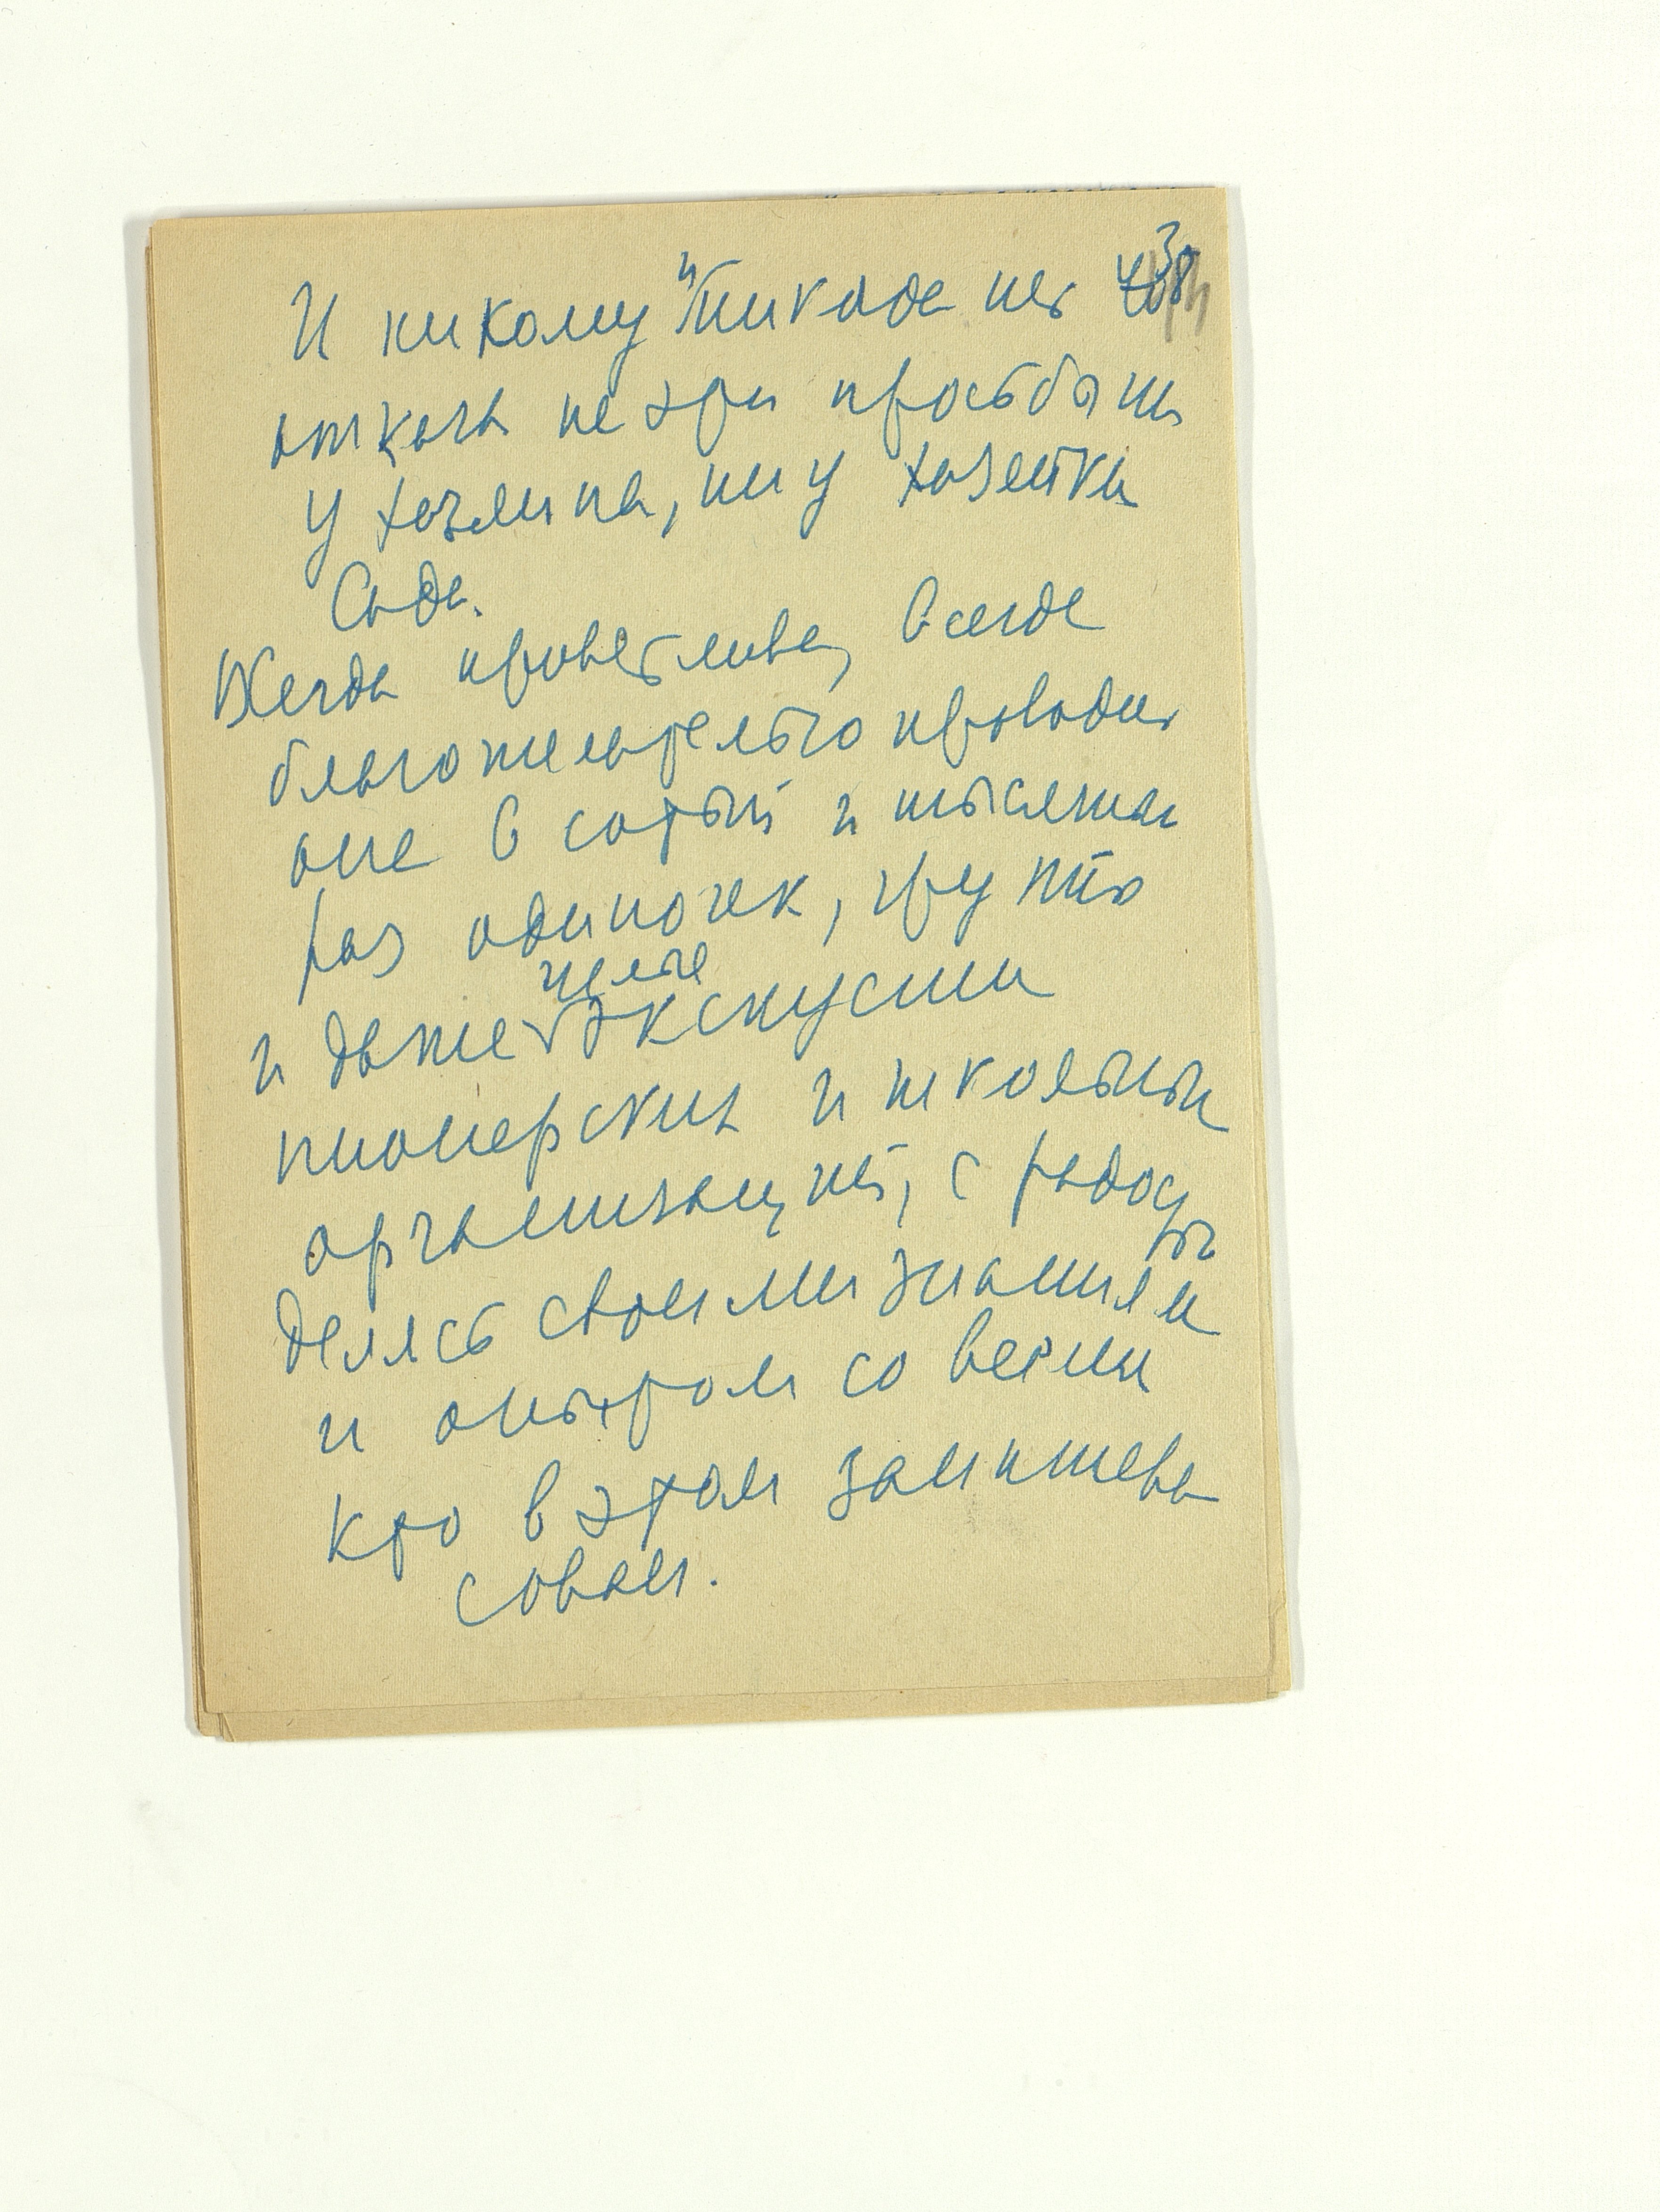 И никому и никогда нет
отказа на эти просьбы ни
у хозяина, ни у хозяйки
Сада.
Всегда приветливо, всегда
благожелательно проводит
они в сотый и тысячный
раз одиночек, группы
и даже целые экскурсии
пионерских и школьных
организаций, с радостью
делясь своими знаниями
и опытом со всеми
кто в этом заинтере
сован.